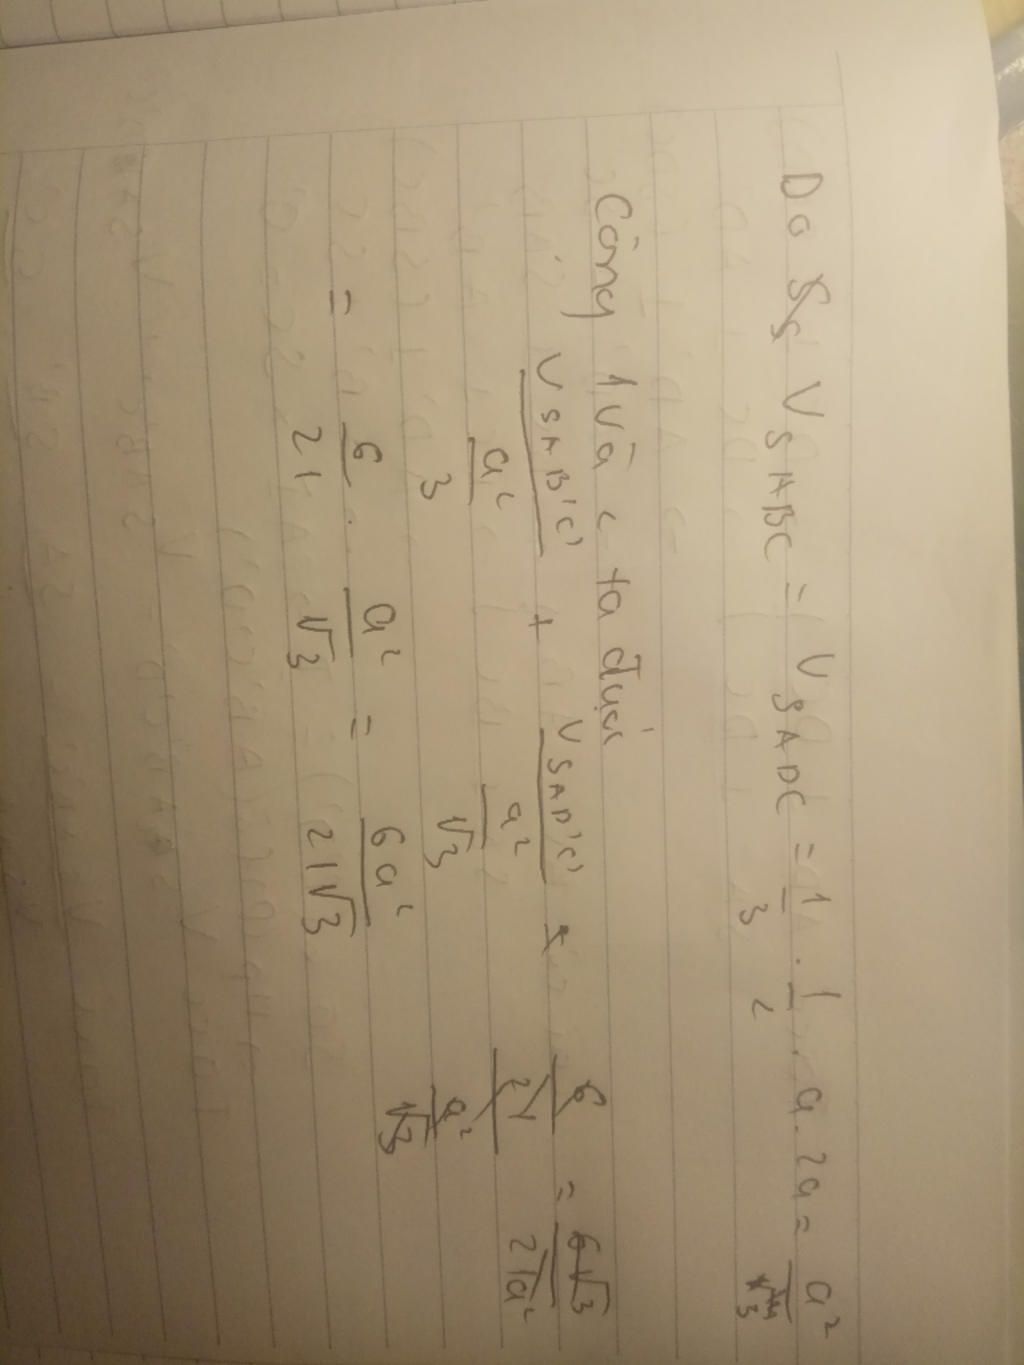 Do V SABC = V SADC = 1/3 . 1/2 . a . 2a = a²/3
Cộng 1 và 2 ta được
V SAB'C' / (a²/3) + V SAD'C' / (a²/√3) = 6√3/21a²
= 6/21 . a²/√3 = 6a²/21√3